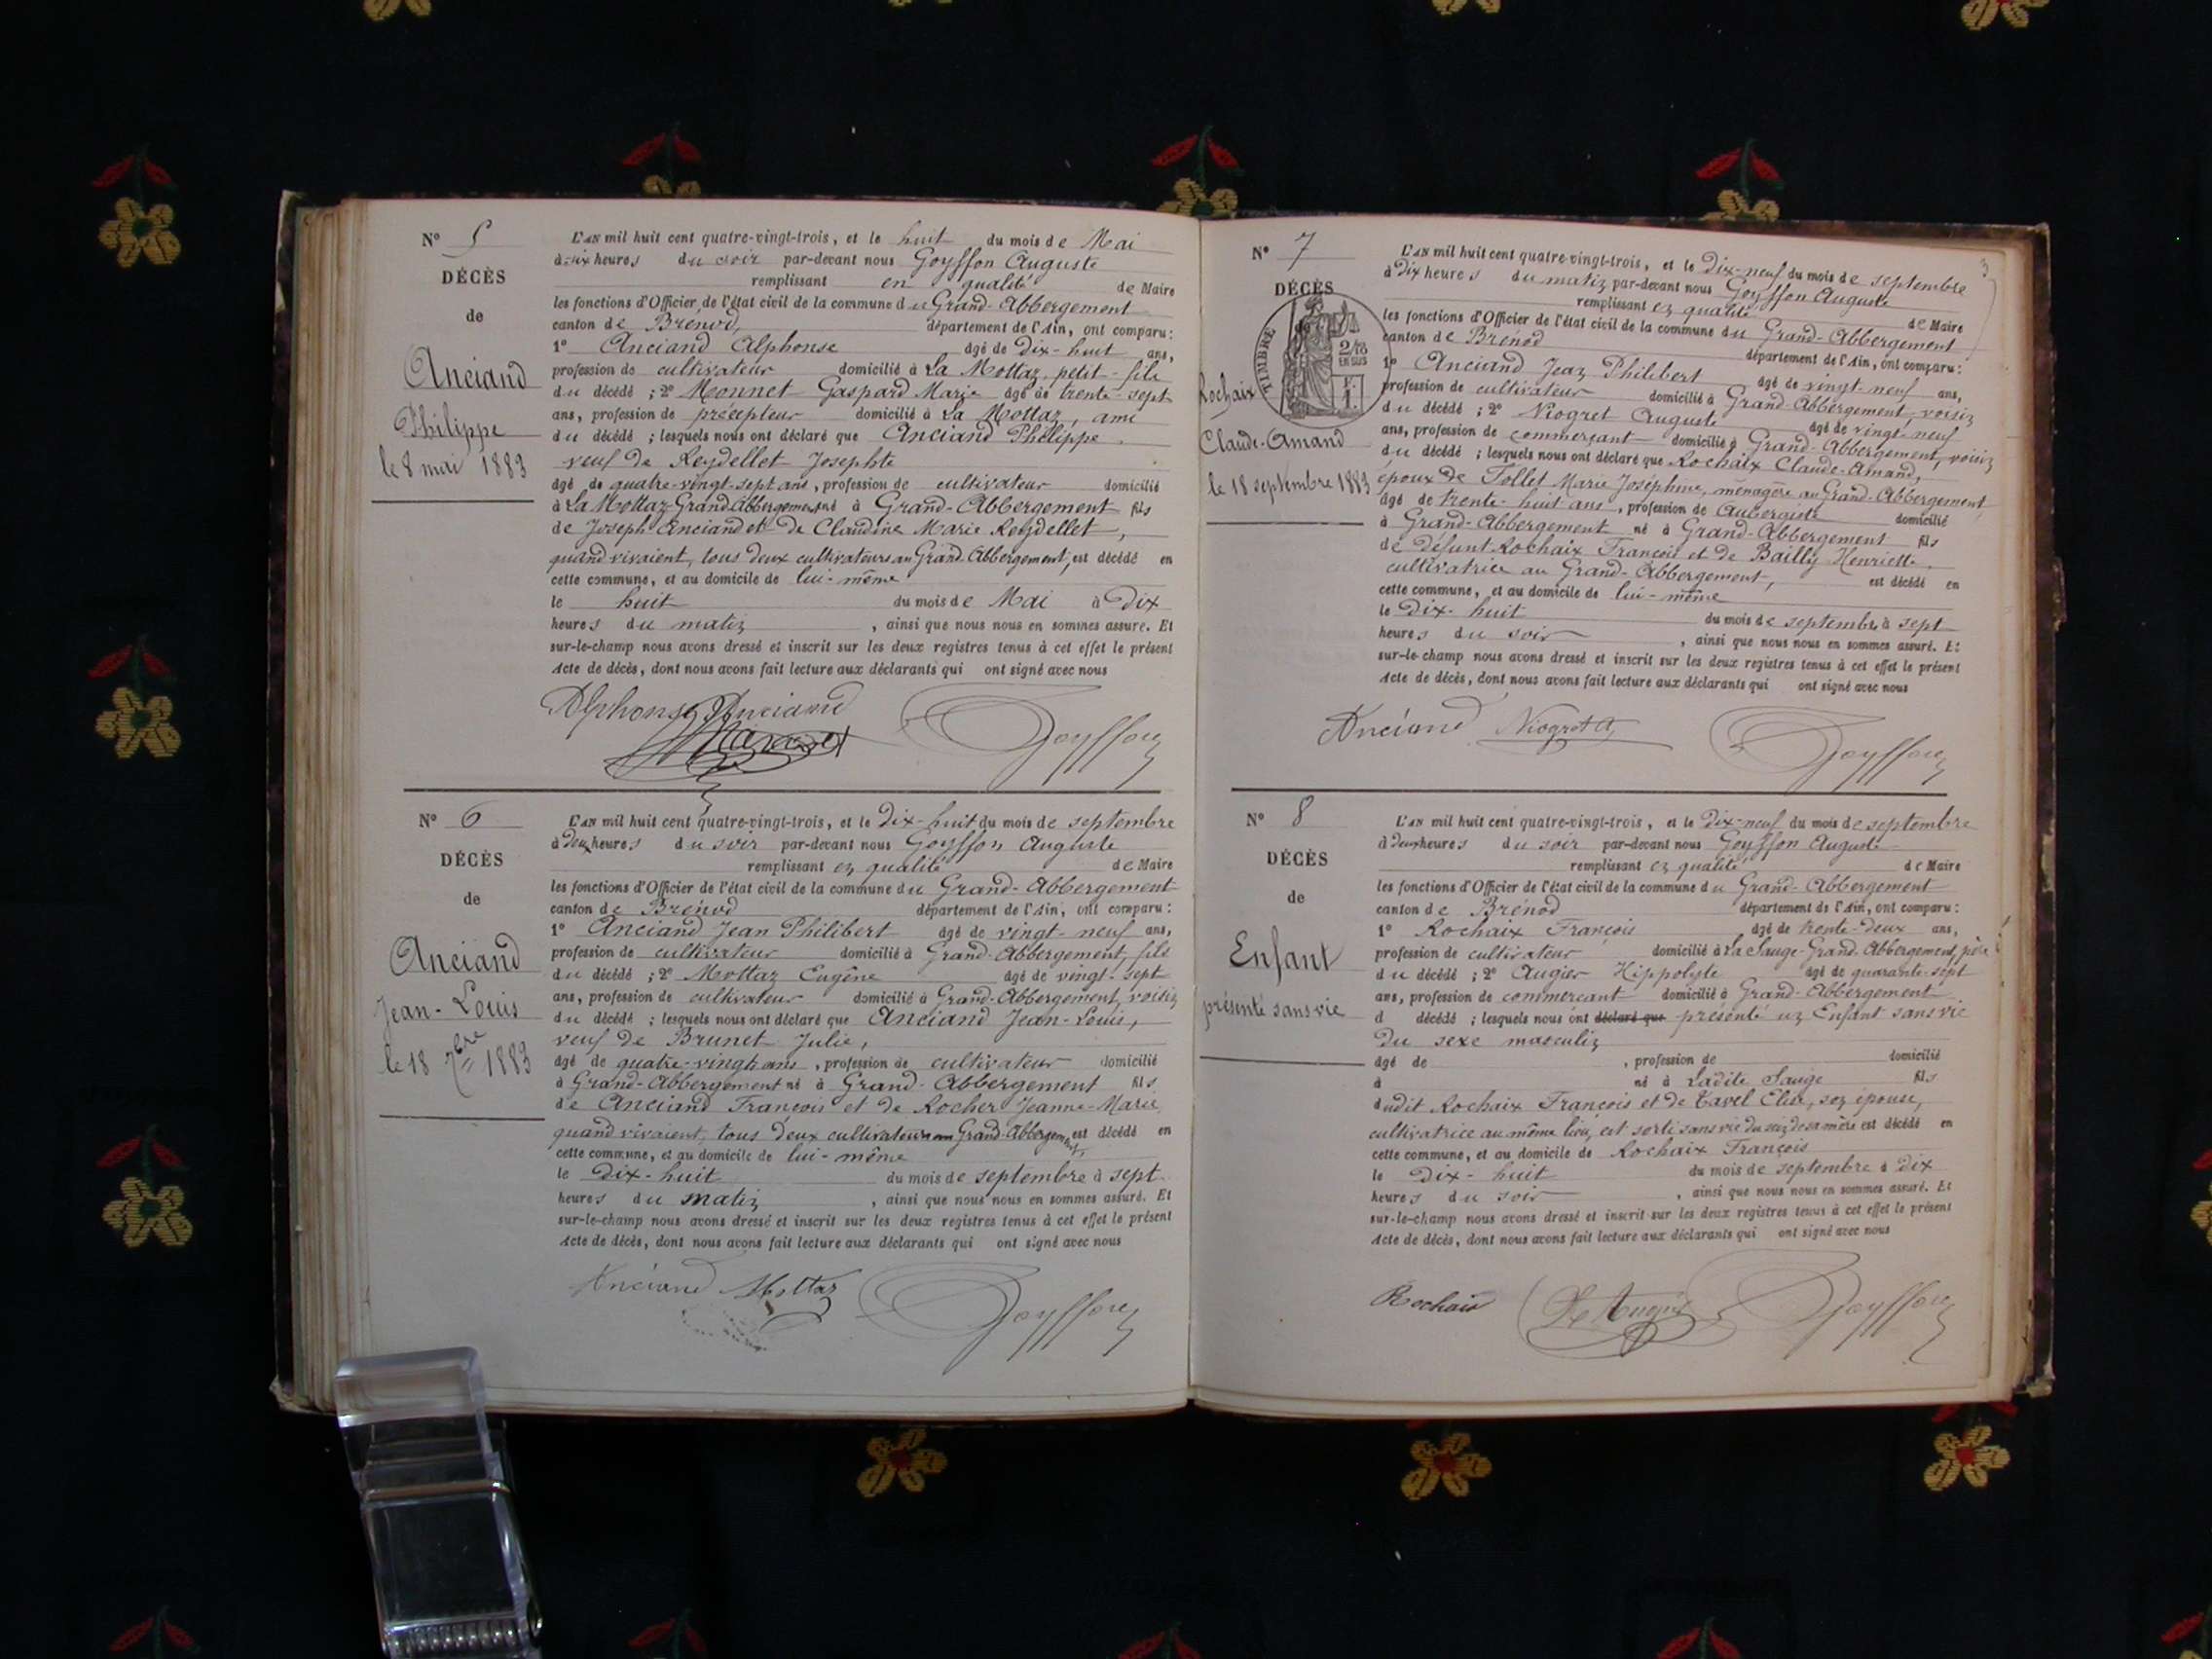 N° 5
DÉCÈS
de
Anciand
Philippe
le 8 mai 1883
L'an mil huit cent quatre-vingt-trois, et le huit du mois de Mai
à six heures du soir par-devant nous Goyffon Auguste
remplissant en qualité de Maire
les fonctions d'Officier de l'état civil de la commune du Grand-Abbergement
canton de Brénod, département de l'Ain, ont comparu:
1° Anciand Alphonse âgé de dix-huit ans,
profession de cultivateur domicilié à La Mottaz, petit-fils
du décédé; 2° Monnet Gaspard Marie âgé de trente-sept
ans, profession de précepteur domicilié à La Mottaz, ami
du décédé; lesquels nous ont déclaré que Anciand Philippe
veuf de Reydellet Josephte
âgé de quatre-vingt-sept ans, profession de cultivateur domicilié
à La Mottaz-Grand Abbergement né à Grand-Abbergement fils
de Joseph Anciand et de Claudine Marie Reydellet,
quand vivaient, tous deux cultivateurs au Grand-Abbergement, est décédé en
cette commune, et au domicile de lui-même
le huit du mois de Mai à Dix
heures du matin, ainsi que nous nous en sommes assuré. Et
sur-le-champ nous avons dressé et inscrit sur les deux registres tenus à cet effet le présent
Acte de décès, dont nous avons fait lecture aux déclarants qui ont signé avec nous
Alphonse Anciand Goyffon
N° 6
DÉCÈS
de
Anciand
Jean-Louis
le 18 7bre 1883
L'an mil huit cent quatre-vingt-trois, et le dix-huit du mois de septembre
à deux heures du soir par-devant nous Goyffon Auguste
remplissant en qualité de Maire
les fonctions d'Officier de l'état civil de la commune du Grand-Abbergement
canton de Brénod département de l'Ain, ont comparu:
1° Anciand Jean Philibert âgé de vingt-neuf ans,
profession de cultivateur domicilié à Grand-Abbergement, fils
du décédé; 2° Mottaz Eugène âgé de vingt-sept
ans, profession de cultivateur domicilié à Grand-Abbergement, voisin
du décédé; lesquels nous ont déclaré que Anciand Jean-Louis,
veuf de Brunet Julie,
âgé de quatre-vingts ans, profession de cultivateur domicilié
à Grand-Abbergement né à Grand-Abbergement fils
de Anciand François et de Rocher Jeanne-Marie
quand vivaient, tous deux cultivateurs au Grand-Abbergement, est décédé en
cette commune, et au domicile de lui-même
le Dix-huit du mois de septembre à sept
heures du matin, ainsi que nous nous en sommes assuré. Et
sur-le-champ nous avons dressé et inscrit sur les deux registres tenus à cet effet le présent
Acte de décès, dont nous avons fait lecture aux déclarants qui ont signé avec nous
Anciand Mottaz Goyffon
3
N° 7
DÉCÈS
TIMBRE
2/10
EN SUS
Rochaix
Claude-Amand
le 18 septembre 1883
L'an mil huit cent quatre-vingt-trois, et le dix-neuf du mois de septembre
à dix heures du matin par-devant nous Goyffon Auguste
remplissant en qualité de Maire
les fonctions d'Officier de l'état civil de la commune du Grand-Abbergement
canton de Brénod département de l'Ain, ont comparu:
1° Anciand Jean Philibert âgé de vingt-neuf ans,
profession de cultivateur domicilié à Grand-Abbergement, voisin
du décédé; 2° Niogret Auguste âgé de vingt-neuf
ans, profession de commerçant domicilié à Grand-Abbergement, voisin
du décédé; lesquels nous ont déclaré que Rochaix Claude-Amand,
époux de Tollet Marie Joséphine, ménagère au Grand-Abbergement
âgé de trente-huit ans, profession de Aubergiste domicilié
à Grand-Abbergement né à Grand-Abbergement fils
de défunt Rochaix François et de Bailly Henriette,
cultivatrice au Grand-Abbergement, est décédé en
cette commune, et au domicile de lui-même
le Dix-huit du mois de septembre à sept
heures du soir, ainsi que nous nous en sommes assuré. Et
sur-le-champ nous avons dressé et inscrit sur les deux registres tenus à cet effet le présent
Acte de décès, dont nous avons fait lecture aux déclarants qui ont signé avec nous
Anciand Niogret A Goyffon
N° 8
DÉCÈS
de
Enfant
présenté sans vie
L'an mil huit cent quatre-vingt-trois, et le dix-neuf du mois de septembre
à deux heures du soir par-devant nous Goyffon Auguste
remplissant en qualité de Maire
les fonctions d'Officier de l'état civil de la commune du Grand-Abbergement
canton de Brénod département de l'Ain, ont comparu:
1° Rochaix François âgé de trente-deux ans,
profession de cultivateur domicilié à La Sauge-Grand-Abbergement, père
du décédé; 2° Augier Hippolyte âgé de quarante-sept
ans, profession de commerçant domicilié à Grand-Abbergement
d décédé; lesquels nous ont déclaré que présenté un Enfant sans vie
du sexe masculin
âgé de , profession de domicilié
à né à Ladite Sauge fils
dudit Rochaix François et de Tavel Elise, son épouse,
cultivatrice au même lieu, est sorti sans vie du sein de sa mère est décédé en
cette commune, et au domicile de Rochaix François
le Dix-huit du mois de septembre à dix
heures du soir, ainsi que nous nous en sommes assuré. Et
sur-le-champ nous avons dressé et inscrit sur les deux registres tenus à cet effet le présent
Acte de décès, dont nous avons fait lecture aux déclarants qui ont signé avec nous
Rochaix Goyffon